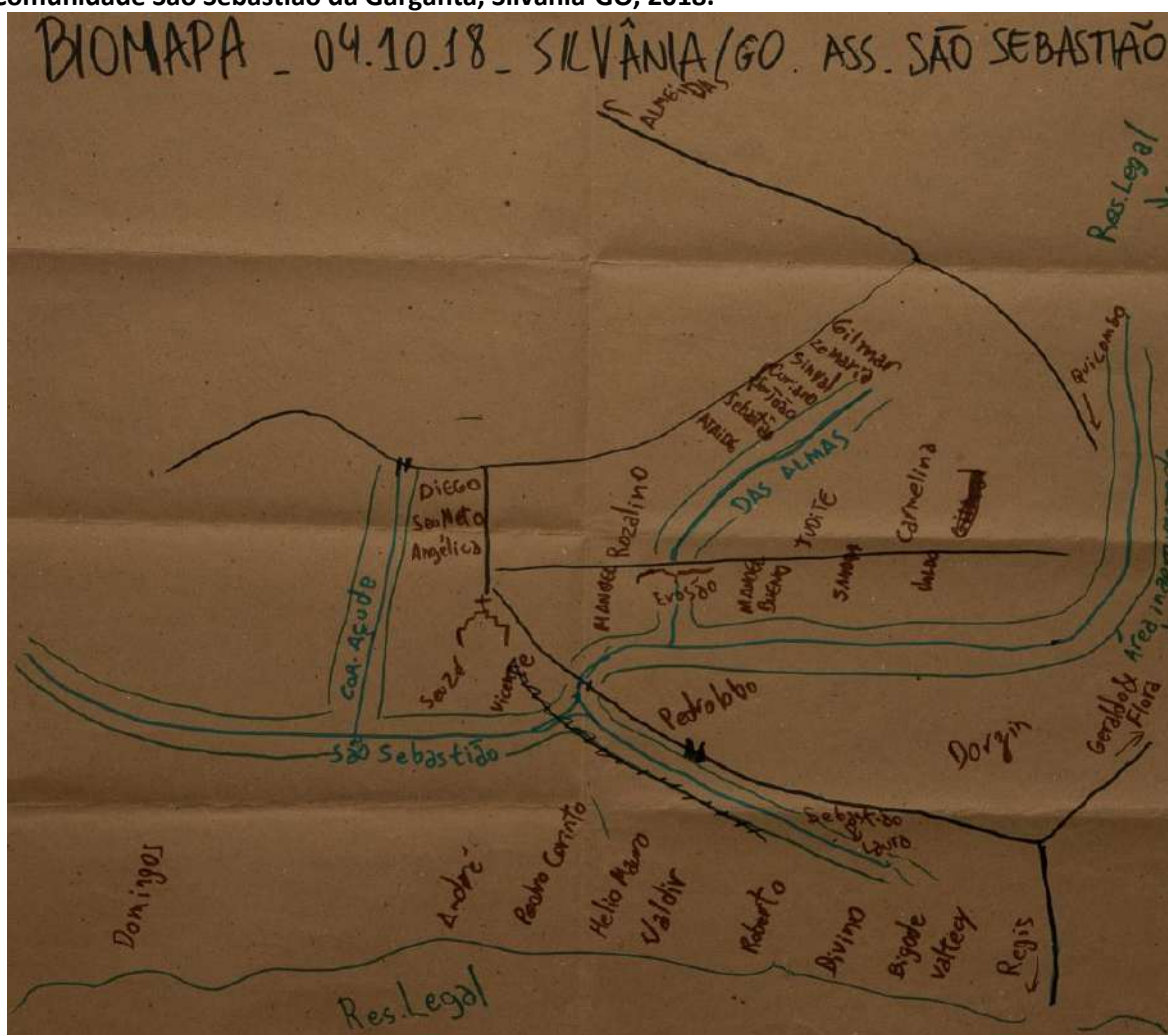 comunidade São Sebastião da Garganta, Silvânia-GO, 2018.
BIOMAPA - 04.10.18 - SILVÂNIA/GO. ASS. SÃO SEBASTIÃO
ALMEIDAS
Res. Legal
QUILOMBO
Gilmar
Zemaria
Sinval
Coriano
Sebastião
ATAIDE
DAS ALMAS
Rozalino
MANOEL
Erosão
MANOEL
BUENO
JUDITE
SANDRA
Carmelina
DIEGO
Seu Neto
Angélica
COR. AÇUDE
Seuzer
Vicente
São Sebastião
Pedrolobo
Geraldo &
Flora
Sebastião
Lauro
Domingos
André
Pedro Corinto
Helio Mauro
Valdir
Roberto
Divino
Bigode
Valtecy
Regis
Res. Legal